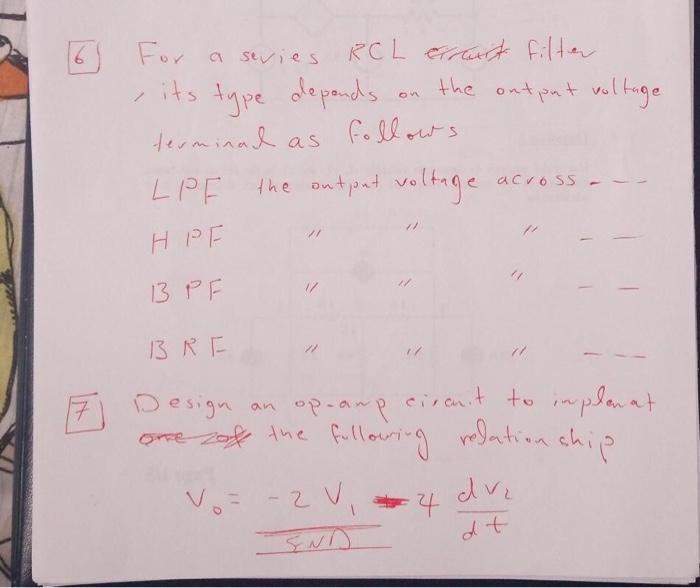 6 For a series RCL filter
, its type depends on the output voltage
terminal as follows
LPF the output voltage across - - -
HPF " " " - -
BPF " " " - -
BRF " " " - - -
7 Design an op-amp circuit to
the following relationship
V₀ = -2 V₁ - 4 dv₂/dt
END